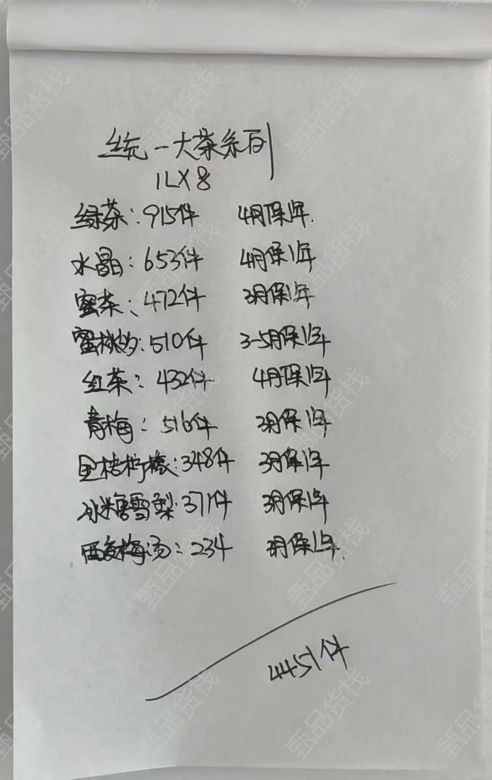 统一大茶系列
1LX8
绿茶：915件 4月保1年.
水晶：653件 4月保1年
蜜茶：472件 3月保1年
蜜桃乌：510件 3-5月保1年
红茶：432件 4月保1年
青梅：516件 3月保1年
金桔柠檬：348件 3月保1年
冰糖雪梨：371件 3月保1年
酸梅汤：234 3月保1年.
4451件
甄品货栈